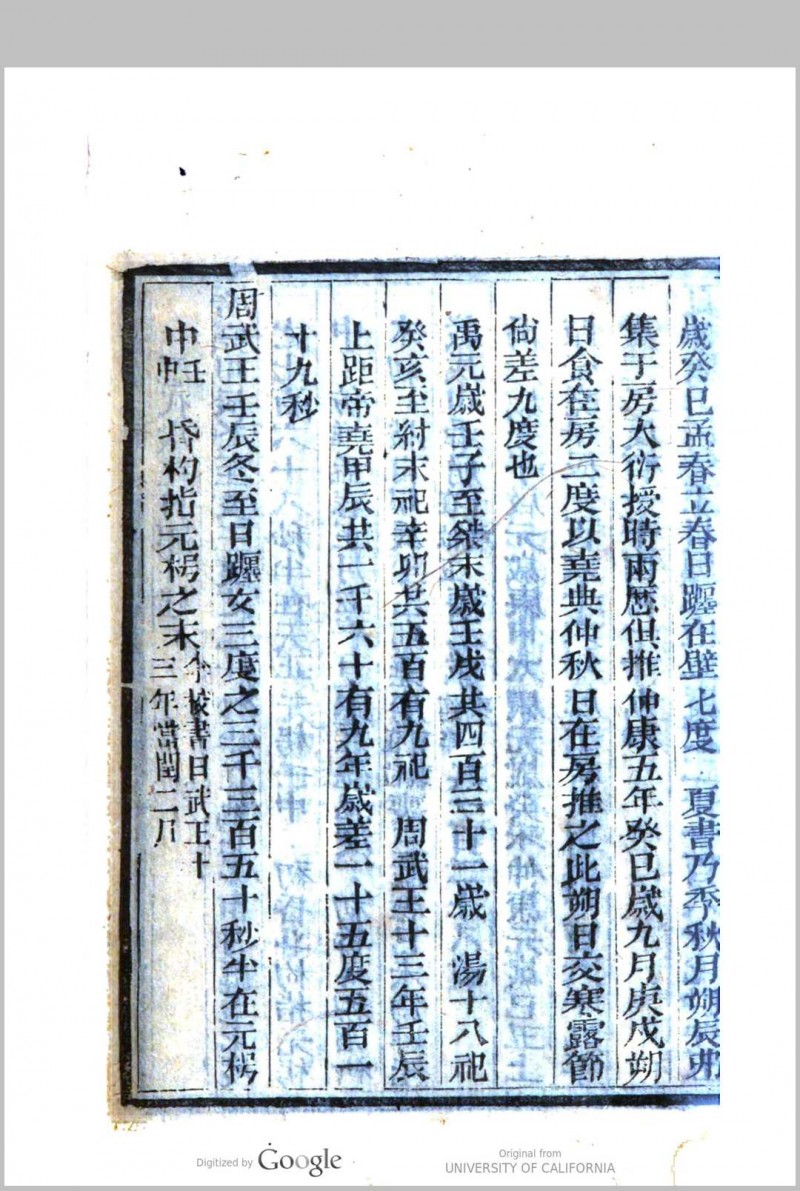 歲癸巳孟春立春日躔在壁七度 夏書乃季秋月朔辰弗
集于房大衍授時兩歷俱推仲康五年癸巳歲九月庚戌朔
日食在房二度以堯典仲秋日在房推之此朔日交寒露節
尙差九度也
禹元歲壬子至桀末歲壬戌共四百三十一歲 湯十八祀
癸亥至紂末祀辛卯共五百有九祀 周武王十三年壬辰
上距帝堯甲辰共一千六十有九年歲差一十五度五百一
十九秒
周武王壬辰冬至日躔女三度之三千三百五十秒半在元枵
中 昏杓指元枵之末 書曰武王十
三年當閏二月
Digitized by Google
Original from
UNIVERSITY OF CALIFORNIA